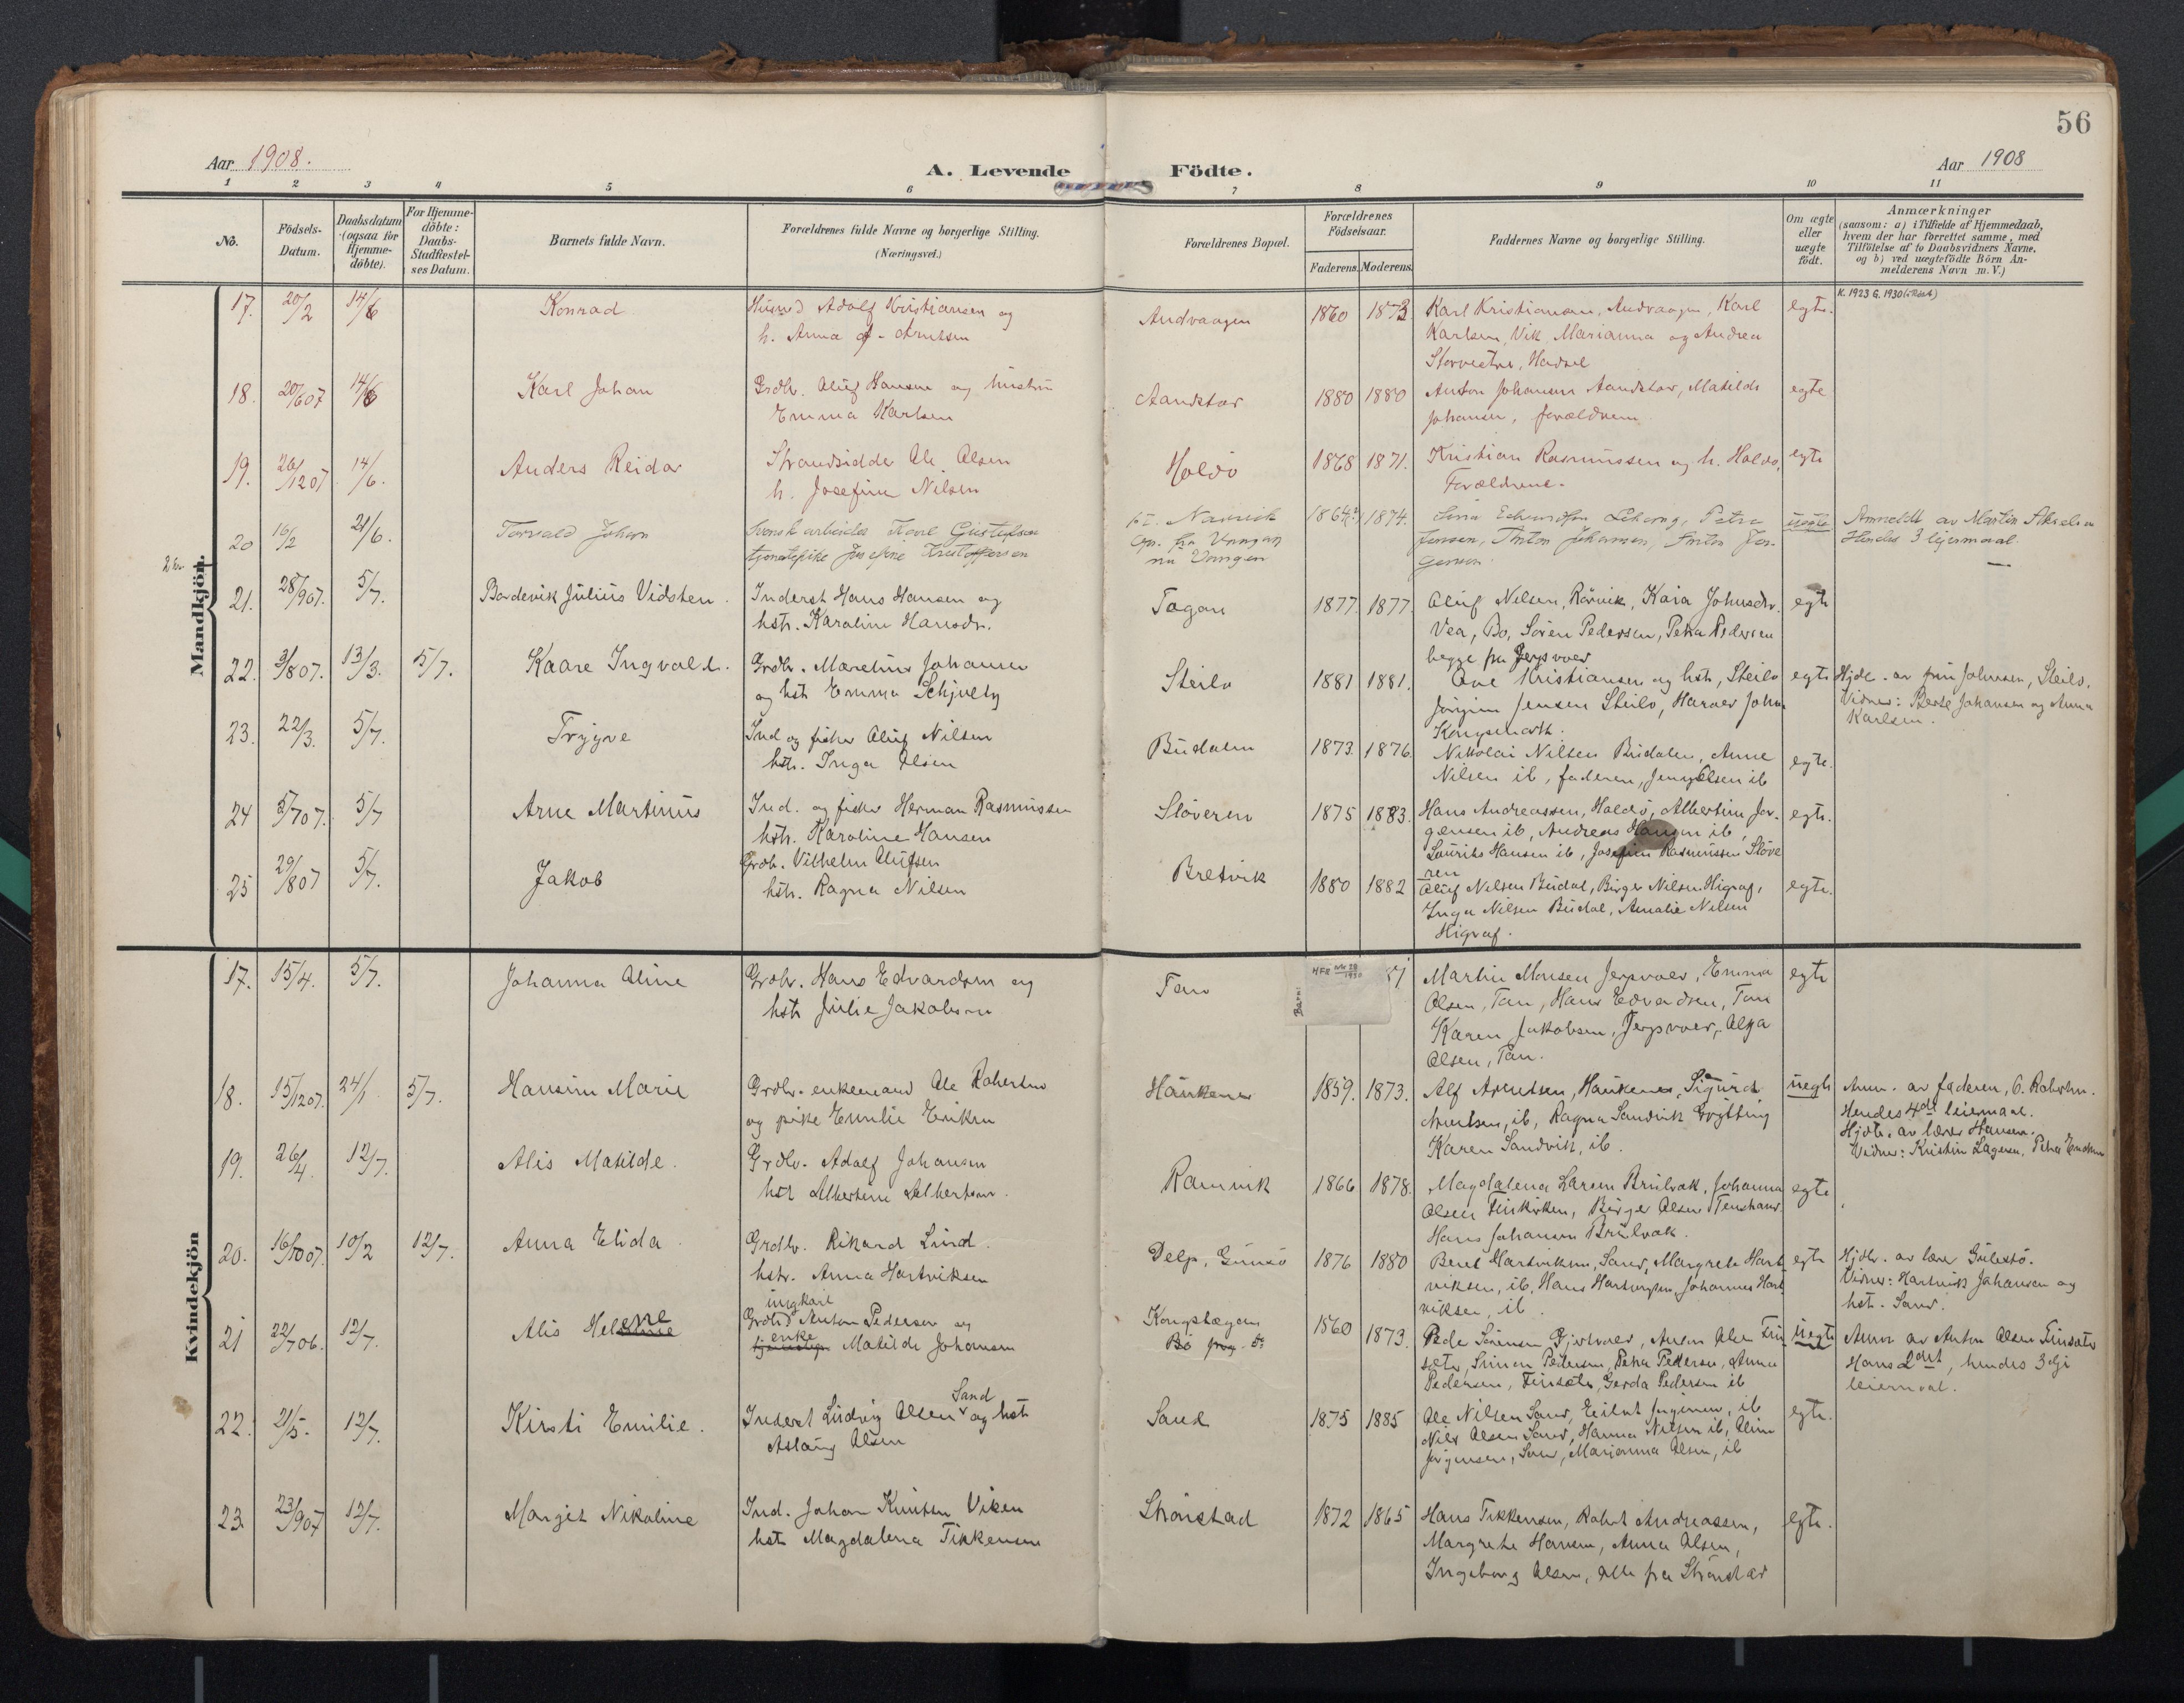 56
Aar 1908.
A. Levende Födte.
Aar 1908
1 2 3 4 5 6 7 8 9 10 11
No.
Födsels-Datum.
Daabsdatum (ogsaa for Hjemme-döbte).
For Hjemme-döbte: Daabs-Stadfæstel-ses Datum.
Barnets fulde Navn.
Forældrenes fulde Navne og borgerlige Stilling.
(Næringsvei.)
Forældrenes Bopæl.
Forældrenes Födselsaar.
Faderens. Moderens.
Faddernes Navne og borgerlige Stilling.
Om ægte eller uægte födt.
Anmærkninger
(saasom: a) i Tilfælde af Hjemmedaab,
hvem der har forrettet samme, med
Tilföielse af to Daabsvidners Navne.
og b) ved uægtefödte Börn An-
melderens Navn m. V.)
Mandkjön.
17. 20/2 14/6 Konrad
Adolf Kristiansen og
h. Anna Arntsen
Andvaagen 1860 1873
Karl Kristiansen, Andvaagen, Karl
Karlsen, Vik, Marianna og Andrea
Storvestre, Hadsel
egte.
K. 1923 G. 1930
18. 20/607 14/6 Karl Johan
Grdbr. Oluf Hansen og hustru
Emma Karlsen
Aandstar 1880 1880
Anton Johansen Aandstar, Matilde
Johansen, forældrene
egte
19. 26/1207 14/6. Anders Reidar
Strandsidder Ole Olsen
h. Josefine Nilsen
Holdö 1868 1871.
Kristian Rasmussen og h. Holdö,
Forældrene.
egte
20 16/2 21/6. Torvald Johan
Svensk arbeider Karl Gustafsen
tjenestepike Josefine Kristoffersen
Narvik
Op. fra Vaagan
nu Vaagan
1864 1874.
Jensen, Anton Johansen, Anton Jör-
gensen.
uegte
Anmeldt av Martin Akselsen
Hendes 3 leiermaal.
21. 28/907. 5/7. Bardevik Julius Vidsten.
Inderst Hans Hansen og
hstr. Karoline Hansdr.
Tagan 1877. 1877.
Oluf Nilsen, Rörvik, Kaia Johnsdr.
Vea, Bö, Sören Pedersen, Petra Pedersen
begge fra Jersvoer
egte
22. 3/807. 13/3. 5/7. Kaare Ingvald.
Grdbr. Marelius Johansen
og hstr Emma Schjelby
Steilo 1881 1881.
Ove Kristiansen og hstr, Steilo
Jörgine Jensen Steilo, Harald Johan
Kongsmark.
egte
Hjdb. av fru Johnsen, Steilo.
Vidner: Berte Johansen og Anna
Karlsen.
23. 22/3. 5/7. Trygve
Ind og fisker Oluf Nilsen
hstr. Inga Olsen
Budalen 1873. 1876.
Nikolai Nilsen Budalen, Anne
Nilsen ib, faderen, Jenny Olsen ib
egte.
24 5/707. 5/7 Arne Martinus
Ind. og fisker Herman Rasmussen
hstr. Karoline Hansen
Stöveren 1875 1883.
Hans Andreassen, Holdö, Albertine Jör-
gensen ib, Andreas Hansen ib,
Laurits Hansen ib, Josefine Rasmussen Stöve
ren
egte.
25 29/807 5/7. Jakob
Grdbr. Vilhelm Olufsen
hstr. Ragna Nilsen
Bretvik 1880 1882
Oluf Nilsen Budal, Birger Nilsen Higraf,
Inga Nilsen Budal, Amalie Nilsen
Higraf.
egte.
Kvindekjön
17. 15/4. 5/7. Johanna Oline
Grdbr. Hans Edvardsen og
hstr Julie Jakobsen
Tan
Martin Monsen Jersvoer, Emma
Olsen, Tan, Hans Edvardsen, Tan
Karen Jakobsen, Jersvoer, Olga
Olsen, Tan.
egte
18. 15/1207. 24/1 5/7. Hansine Marie
Grdbr. enkemand Ole Robertsen
og pike Emelie Eriksen
Haukenes 1859. 1873.
Alf Arntsen, Haukenes, Sigurd
Arntsen, ib, Ragna Sandvik Grytting
Karen Sandvik, ib.
uegte
Anm. av faderen, O. Robertsen.
Hendes 4de leiermaal.
Hjdb. av lærer Hansen.
Vidner: Kristin Lagesen, Petra
19. 26/4 12/7. Alis Matilde.
Grdbr. Adolf Johansen
hstr Albertine Albertsen.
Ramvik 1866 1878.
Magdalena Larsen Brulvak, Johanna
Olsen Finkirken, Birger Olsen
Hans Johansen Brulvak.
egte
20. 16/1007. 10/2 12/7. Anna Elida
Grdbr. Rikard Lund.
hstr. Anna Hartviksen
Delp, Gimsö 1876 1880
Bent Hartviksen, Sand, Margrete Hart-
viksen, ib, Hans Hartvigsen, Johannes Hart
viksen, ib.
egte
Hjdb. av lærer Gulestö.
Vidner: Hartvik Johansen og
hst. Sand.
21 22/706. 12/7. Alis Helene
ungkarl
Anton Pedersen og
enke
Matilde Johansen
Kongshagen
Bö
1860 1873.
Peder Sörensen Gjertvoer, Anton Olsen Fin
sæter, Simon Pedersen, Petra Pedersen, Anna
Pedersen, Finsæter, Gerda Pedersen ib
uegte
Anm av Anton Olsen Finsæter
Hans 2det, hendes 3dje
leiermaal.
22. 21/5. 12/7. Kirsti Emilie.
Sand
Inderst Ludvig Olsen og hstr
Aslaug Olsen
Sand 1875 1885
Ole Nilsen Sand, Eilert Jörgensen, ib
Nils Olsen Sand, Hanna Nilsen ib, Oline
Jörgensen, Sand, Marianna Olsen, ib
egte.
23. 23/907 12/7. Margit Nikoline
Ind. Johan Knutsen Viken
hstr Magdalena Tikkensen
Straumstad 1872 1865
Hans Tikkensen, Robert Andreassen,
Margrete Hansen, Anna Olsen,
Ingeborg Olsen, alle fra Straumstad
egte.